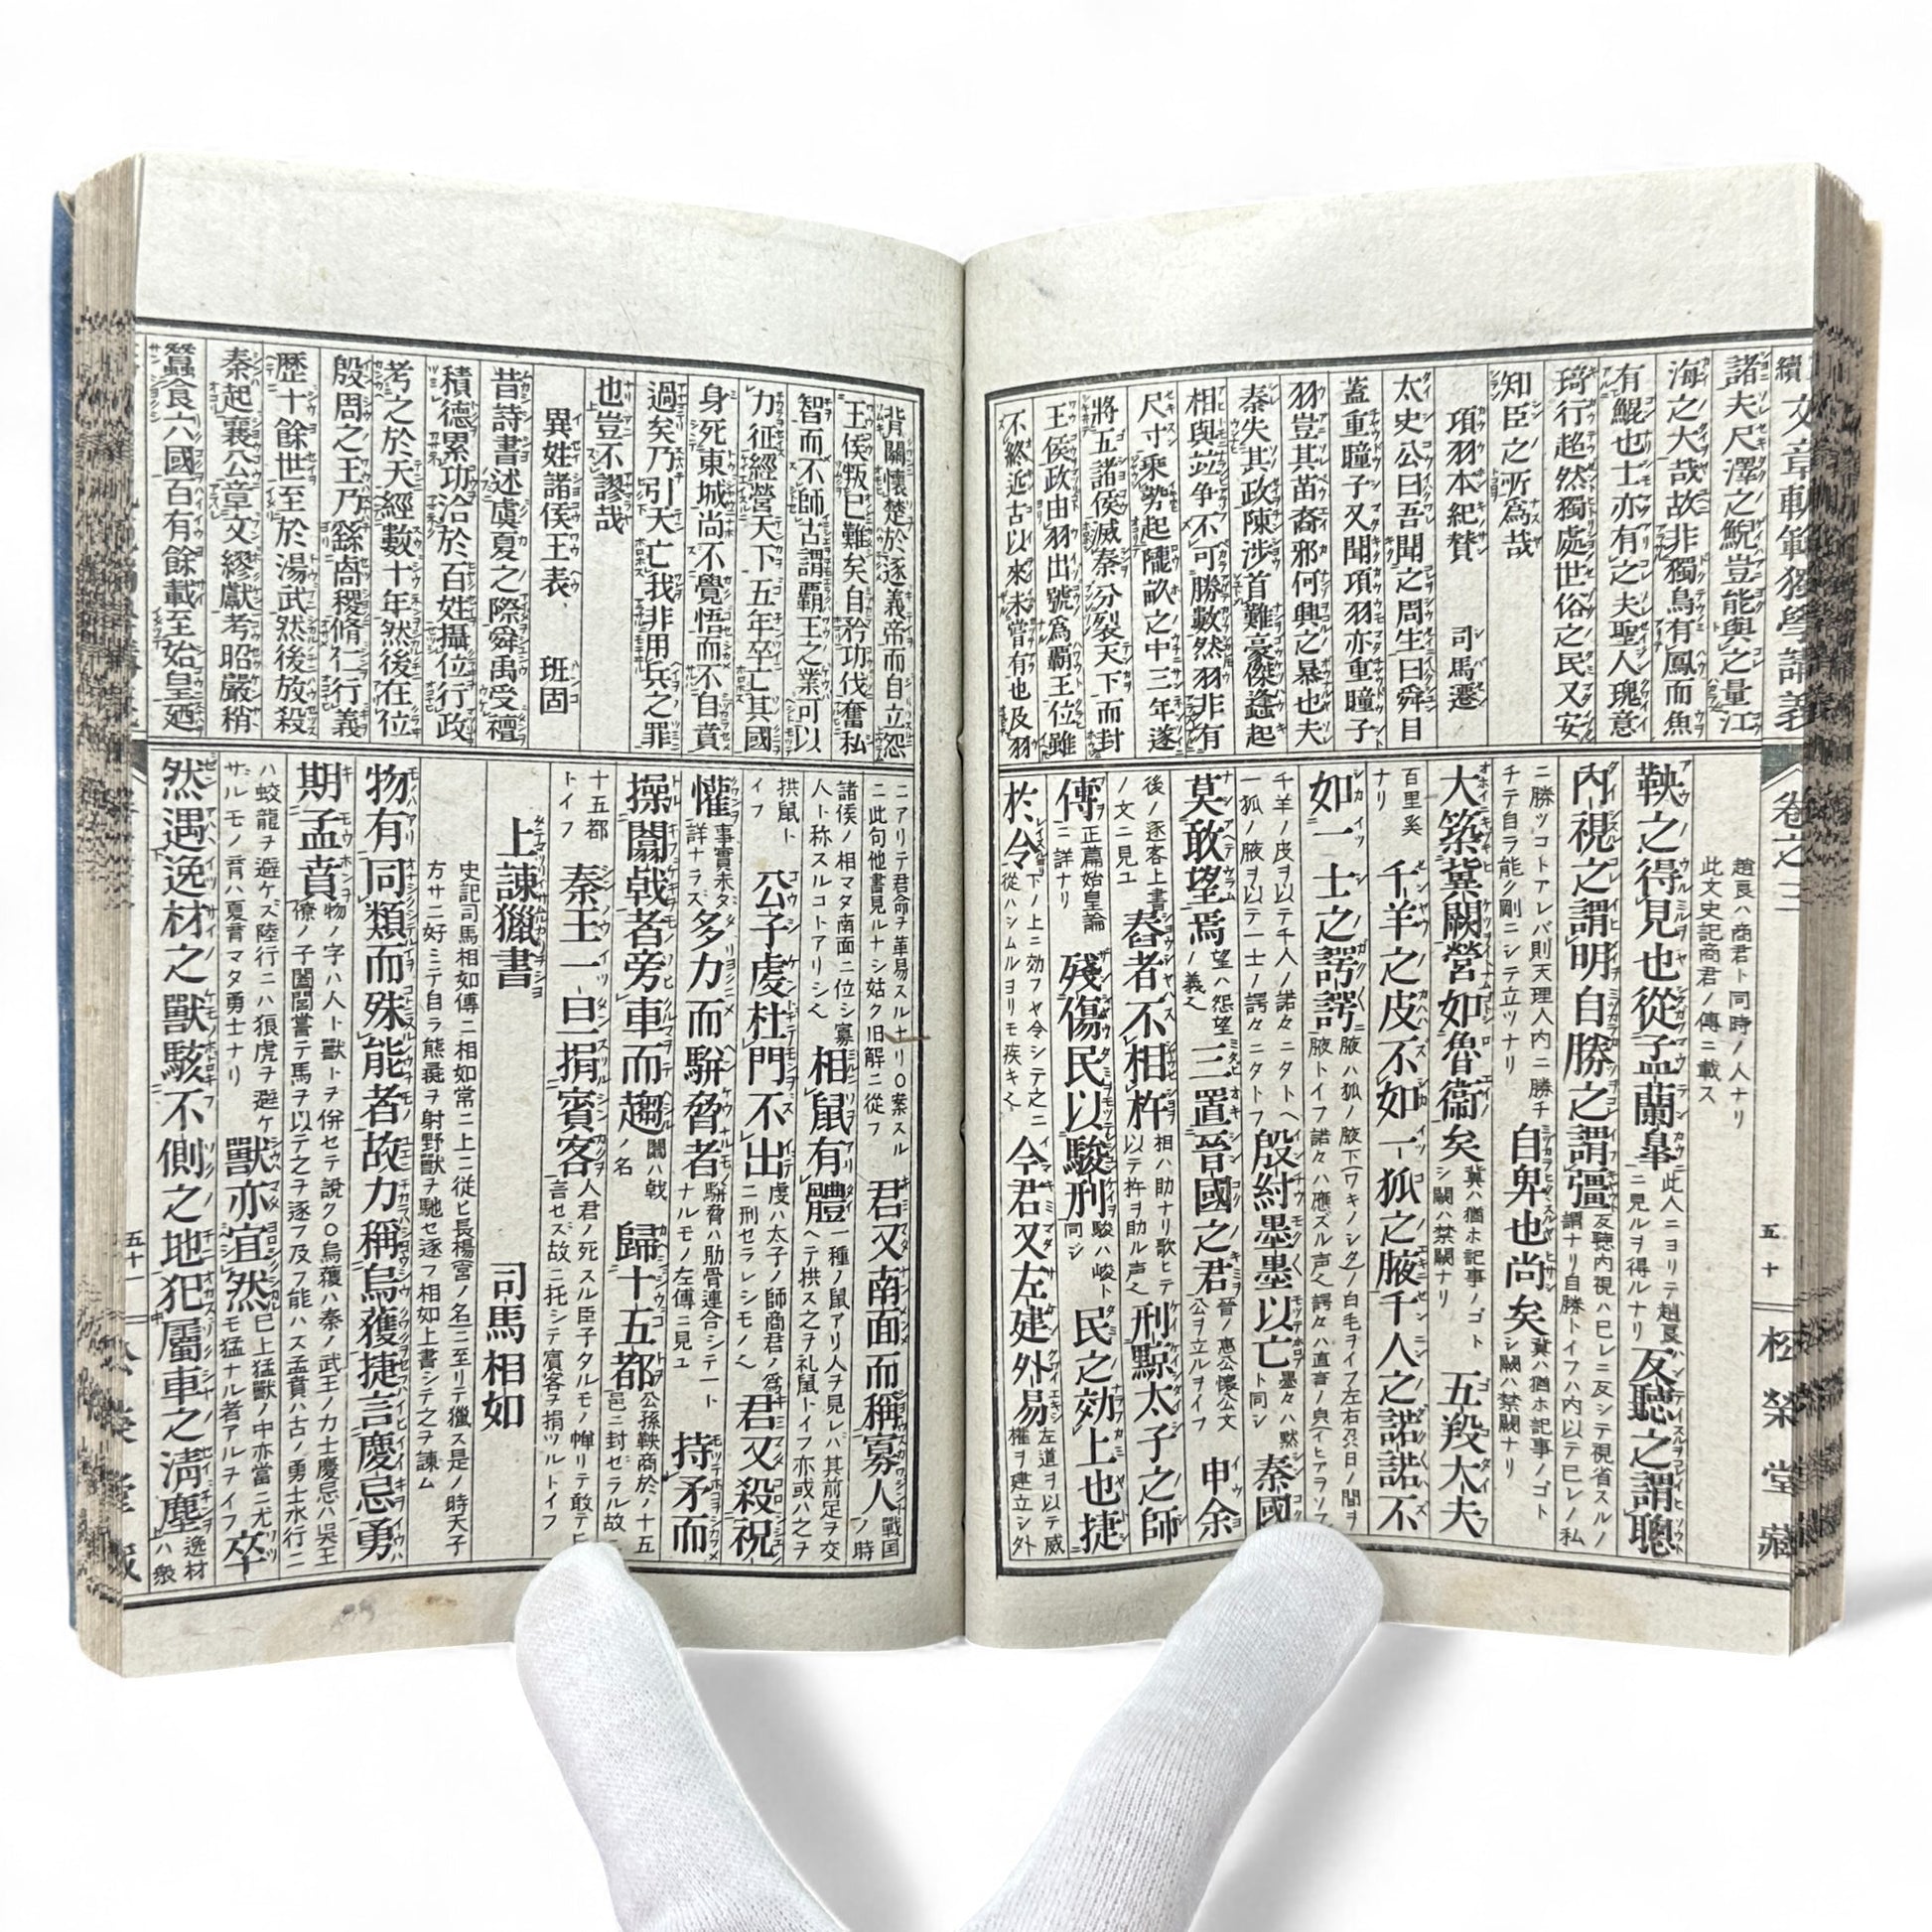 續文章軌範獨學講義
卷之三
五十
松榮堂藏
諸夫尺澤之鯢豈能與之量江
海之大哉故非獨鳥有鳳而魚
有鯤也士亦有之夫聖人瑰意
琦行超然獨處世俗之民又安
知臣之所爲哉
項羽本紀賛 司馬遷
太史公曰吾聞之周生曰舜目
蓋重瞳子又聞項羽亦重瞳子
羽豈其苗裔邪何興之暴也夫
秦失其政陳涉首難豪傑蠭起
相與竝争不可勝數然羽非有
尺寸乘勢起隴畝之中三年遂
將五諸侯滅秦分裂天下而封
王侯政由羽出號爲覇王位雖
不終近古以來未嘗有也及羽
趙良ハ商君ト同時ノ人ナリ
此文史記商君ノ傳ニ載ス
鞅之得見也從孟蘭皐此人ニヨリテ趙良ニ見ルヲ得ルナリ反聽之謂聰
內視之謂明自勝之謂彊反聽內視ハ已レニ反シテ視省スルノ謂ナリ自勝トイフハ內以テ已レノ私
ニ勝ッコトアレバ則天理人内ニ勝チテ自ラ能ク剛ニシテ立ツナリ自卑也尚矣
大築冀闕營如魯衞矣冀ハ猶ホ記事ノゴトシ闕ハ禁闕ナリ五羖大夫
百里奚ナリ千羊之皮不如一狐之腋千人之諾諾不
如一士之諤諤
千羊ノ皮ヲ以テ千人ノ諾々ニタトヘ一狐ノ腋ヲ以テ一士ノ諤々ニタトフ殷紂墨墨以亡墨々ハ黙ト同シ秦國
莫敢望焉望ハ怨望ノ義三置晉國之君晉ノ惠公懷公文公ヲ立ルヲイフ申余
後ノ逐客上書ノ文ニ見ユ舂者不相杵相ハ助ナリ歌ヒテ以テ杵ヲ助ル声刑黥太子之師
傅ニ正篇始皇論ニ詳ナリ殘傷民以駿刑駿ハ峻ト同シ民之効上也捷
於令下ノ上ニ効フヤ令シテ之ニ從ハシムルヨリモ疾キ今君又左建外易左道ヲ以テ威權ヲ建立シ外
背關懷楚於逐義帝而自立怨
王侯叛已難矣自矜功伐奮私
智而不師古謂覇王之業可以
力征經營天下五年卒亡其國
身死東城尚不覺悟而不自責
過矣乃引天亡我非用兵之罪
也豈不謬哉
異姓諸侯王表 班固
昔詩書述虞夏之際舜禹受禪
積德累功洽於百姓攝位行政
考之於天經數十年然後在位
殷周之王乃繇卨稷脩仁行義
歷十餘世至於湯武然後放殺
秦起襄公章文繆獻考昭嚴稍
蠶食六國百有餘載至始皇廼
ニアリテ君命ヲ革易スルナリ○案スルニ此句他書見ルナシ姑ク旧解ニ從フ君又南面而稱寡人戰国ノ時
諸侯ノ相マタ南面ニ位シ寡人ト称スルコトアリシ相鼠有體一種ノ鼠アリ人ヲ見レバ其前足ヲ交ヘテ拱ス之ヲ礼鼠トイフ亦或ハ之ヲ
拱鼠トイフ公子虔杜門不出虔ハ太子ノ師商君ノ爲ニ刑セラレシモノ君又殺祝
懽事實未タ詳ナラズ多力而駢脅者駢脅ハ肋骨連合シテ一トナルモノ左傳ニ見ユ持矛而
操闟戟者旁車而趨闟ハ戟ノ名歸十五都公孫鞅商於ノ十五邑ニ封ゼラル故ニ
十五都トイフ秦王一旦捐賓客人君ノ死スル臣子タルモノ憚リテ敢テ言セズ故ニ託シテ賓客ヲ捐ツルトイフ
上諫獵書
司馬相如
史記司馬相如傳ニ相如常ニ上ニ從ヒ長楊宮ノ名ニ至リテ獵ス是ノ時天子
方サニ好ミテ自ラ熊彘ヲ射野獸ヲ馳セ逐フ相如上書シテ之ヲ諫ム
物有同類而殊能者故力稱烏獲捷言慶忌勇
期孟賁物ノ字ハ人ト獸トヲ併セテ說ク○烏獲ハ秦ノ武王ノ力士慶忌ハ吳王僚ノ子闔閭嘗テ馬ヲ以テ之ヲ逐フ及フ能ハズ孟賁ハ古ノ勇士水行ニ
ハ蛟龍ヲ避ケズ陸行ニハ狼虎ヲ避ケサルモノ育ハ夏育マタ勇士ナリ獸亦宜然已上猛獸ノ中亦當ニ尤モ猛ナル者アルヲイフ卒
然遇逸材之獸駭不側之地犯屬車之淸塵逸材ハ衆
五十一